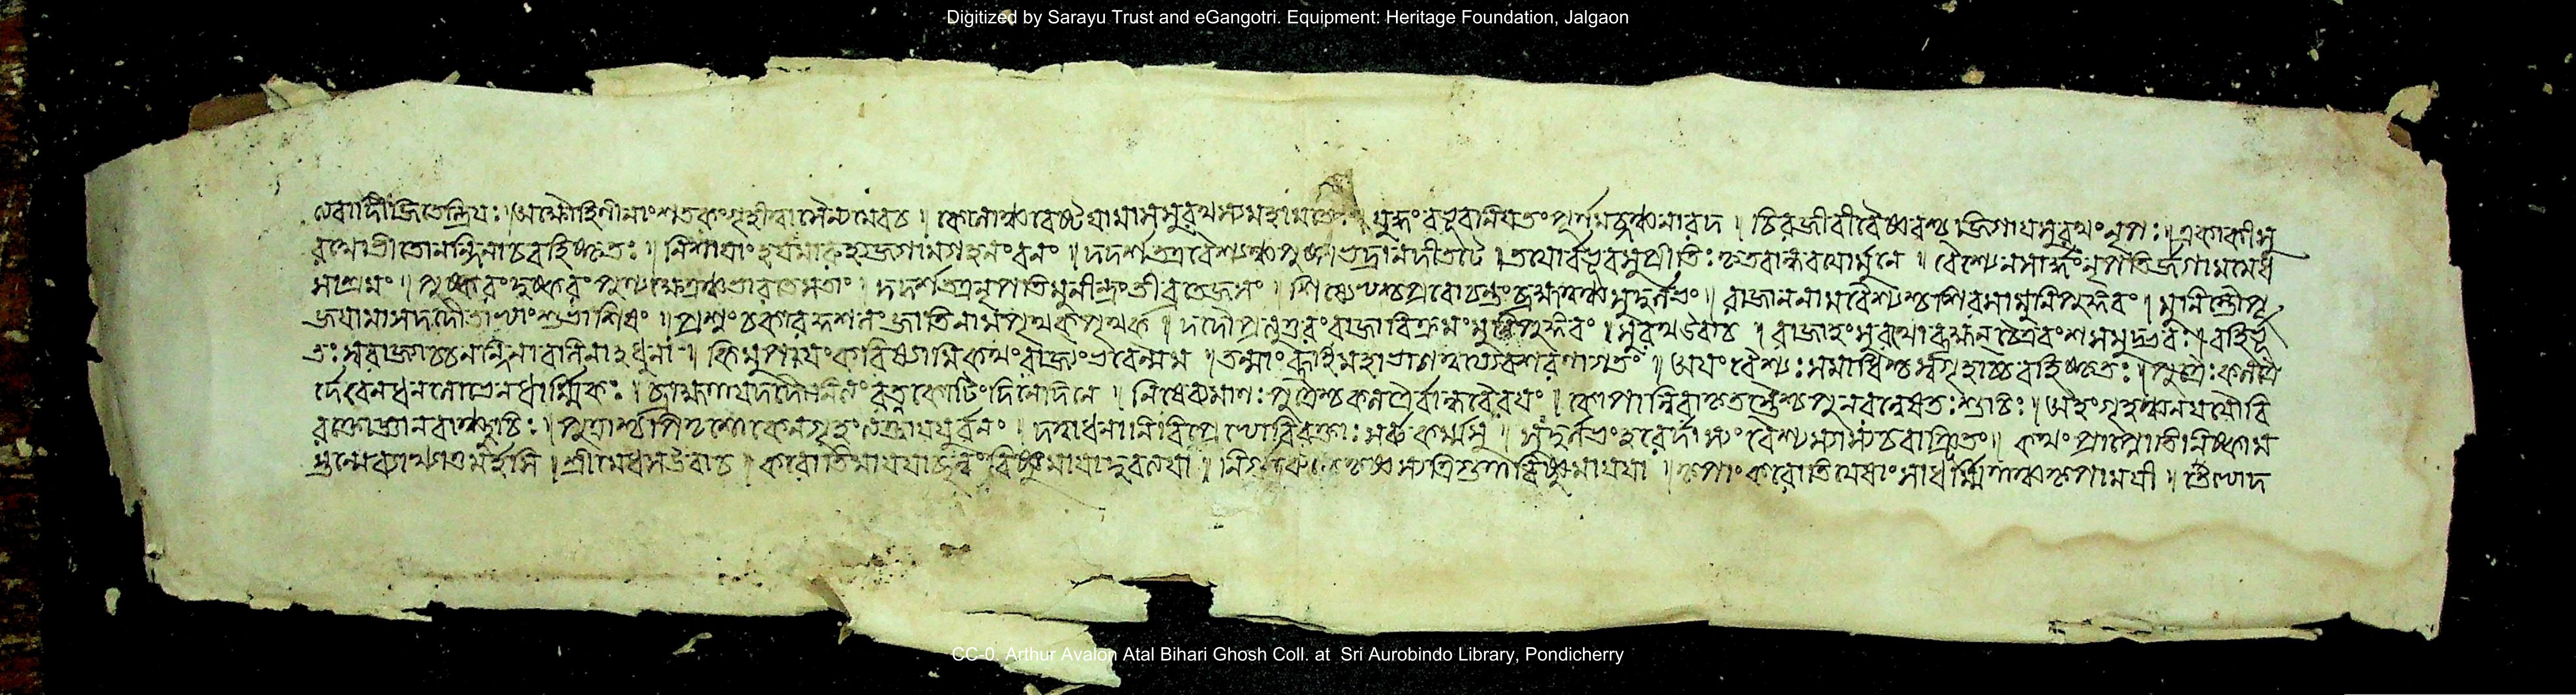 Digitized by Sarayu Trust and eGangotri. Equipment: Heritage Foundation, Jalgaon
জিতেন্দ্রিয়ঃ। অক্ষৌহিণীনাং শতকং গৃহীত্বা সৈন্যমেবচ। কোলাঞ্চ বেষ্টয়ামাস সুরথস্য মহামতেঃ। যুদ্ধং বভূব নিয়তং পূর্ণমব্দঞ্চ নারদ। চিরজীবী বৈষ্ণবশ্চ জিগায় সুরথং নৃপঃ। একাকী সু
রথো ভীতো নন্দিনা চ বহিষ্কৃতঃ। নিশায়াং হয়মারুহ্য জগাম গহনং বনং। দদর্শ তত্র বৈশ্যঞ্চ পুষ্পভদ্রানদীতটে। তয়োর্বভূব সম্প্রীতিঃ কৃতবান্ধবয়োর্মুনে। বৈশ্যেন সার্দ্ধং নৃপতির্জগাম মেধ
সাশ্রমং। পুষ্করং দুষ্করং পুণ্যক্ষেত্রঞ্চ ভারতে সতাং। দদর্শ তত্র নৃপতির্মুনীন্দ্রং তীব্রতেজসং। শিষ্যেভ্যশ্চ প্রবোচন্তং ব্রহ্মতত্ত্বং সুদুর্লভং। রাজা ননাম বৈশ্যশ্চ শিরসা মুনিপুঙ্গবং। মুনিস্তৌ পূ
জয়ামাস দদৌ তাভ্যাং শুভাশিষং। প্রশ্নং চকার কুশলং জাতিনাম পৃথক্ পৃথক্। দদৌ প্রত্যুত্তরং রাজা বিক্রমং মুনিপুঙ্গবং। সুরথ উবাচ। রাজাহং সুরথো ব্রহ্মন্ চৈত্রবংশসমুদ্ভবঃ। বহির্ভূ
তঃ স্বরাজ্যাচ্চ নন্দিনা বলিনাহধুনা। কিমুপায়ং করিষ্যামি কথং রাজ্যং ভবেন্মম। তন্মাং ব্রূহি মহাভাগ শরণাগতং। অয়ং বৈশ্যঃ সমাধিশ্চ স্বগৃহাচ্চ বহিষ্কৃতঃ। পুত্রৈঃ কলত্রৈ
র্দৈবেন ধনলোভেন ধার্ম্মিকঃ। ব্রাহ্মণায় দদৌ নিত্যং রত্নকোটিং দিনে দিনে। নিষেধমানঃ পুত্রৈশ্চ কলত্রৈর্বান্ধবৈরয়ং। কোপান্নিরাকৃতস্তৈশ্চ পুনরন্বেষিতঃ শুচিঃ। অয়ং গৃহঞ্চ ন যযৌ বি
রক্তো জ্ঞানবাঞ্ছুচিঃ। পুত্রাশ্চ পিতৃশোকেন গৃহং ত্যক্ত্বা যযুর্বনং। দত্ত্বা ধনানি বিপ্রেভ্যো বিরক্তাঃ সর্ব্বকর্ম্মসু। সুদুর্লভং হরের্দাস্যং বৈশ্যস্যাস্য চ বাঞ্ছিতং। কথং প্রাপ্নোতি নিষ্কাম
স্তন্মে ব্যাখ্যাতুমর্হসি। শ্রীমেধস উবাচ। করোতি মায়য়াচ্ছন্নং বিষ্ণুমায়া দুরত্যয়া। কৃষ্ণস্য ত্রিগুণা বিষ্ণুমায়য়া। কৃপাং করোতি যেষাং সা ধর্ম্মিণাঞ্চ কৃপাময়ী। তেভ্যো দ
CC-0. Arthur Avalon Atal Bihari Ghosh Coll. at Sri Aurobindo Library, Pondicherry